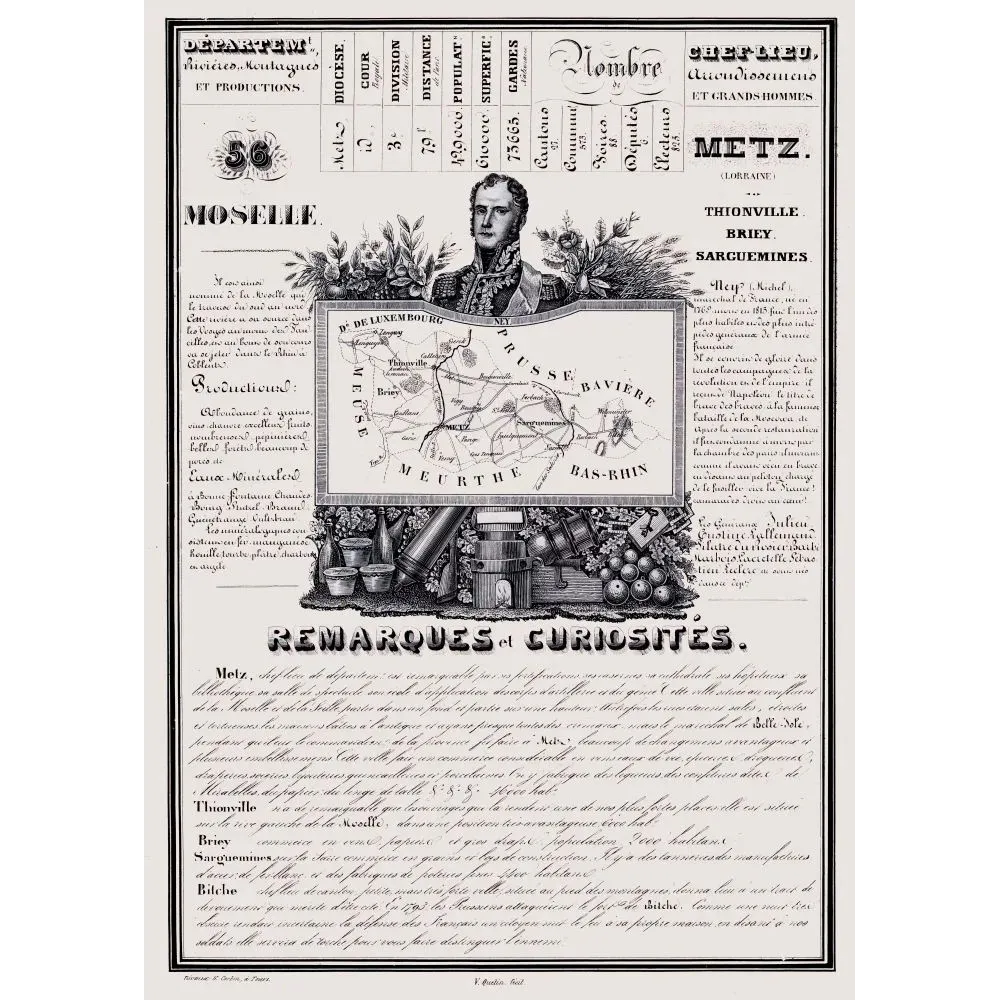 DÉPARTEMt,,
Rivières, Montagnes
ET PRODUCTIONS.
DIOCESE.
Metz
COUR
Royale
id
DIVISION
Militaire
3e
DISTANCE
de Paris
79 l
POPULATn
429,000.
SUPERFICe
610000
GARDES
Nationaux
75665.
Nombre
de
Cantons
27.
Communes
573.
Foires.
88
Députés
6
Electeurs
825.
CHEF-LIEU,
Arrondissemens
ET GRANDS-HOMMES
56
MOSELLE.
METZ.
(LORRAINE)
THIONVILLE.
BRIEY.
SARGUEMINES.
Il est ainsi
nommé de la Moselle qui
le traverse du sud au nord
Cette rivière a sa source dans
les Vosges au
et au bout de son cours
va se jeter dans le Rhin à
Coblentz
Productions:
Abondance de grains,
vins chanvre excellens fruits
nombreuses pepinières
belles forêts beaucoup de
porcs etc
Eaux Minérales
à Bonne Fontaine Chaudes-
Bourg
Guenetrange
Les minéralogiques con
sistent en fer manganèse
houille tourbe plâtre charbon
en argile
Ney (Michel),
maréchal de France, né en
1769 mort en 1815 fut l'un des
plus habiles et des plus intré-
pides généraux de l'armée
française
Il se couvrit de gloire dans
toutes les campagnes de la
révolution et de l'empire il
reçut de Napoléon le titre de
brave des braves, à la fameuse
bataille de la Moscowa, etc
Après la seconde restauration
il fut condamné à mort par
la chambre des pairs il mourut
comme il avait vécu en brave
en disant au peloton chargé
de le fusiller vive la France!
camarades droit au cœur!
Les Généraux
Custine, Lallemand,
Pilatre du Rosier Barbé
Marbois Lacretelle Sébas
tien Leclerc
NEY
Dé DE LUXEMBOURG
PRUSSE
BAVIÈRE
MEUSE
MEURTHE
BAS-RHIN
Longwy
Longuyon
Sierck
Thionville
Briey
Bouzonville
Forbach
Conflans
METZ
St Avold
Sarguemines
Gorze
Faulquemont
Rorbach
Bitche
REMARQUES et CURIOSITÉS.
Metz, chef lieu de départem: est remarquable par ses fortifications ses casernes sa cathédrale ses hôpitaux sa
bibliothèque, sa salle de spectacle son école d'application des corps d'artillerie et du génie Cette ville située au confluent
de la Moselle et de la Seille partie dans un fond et partie sur une hauteur Autrefois les rues étaient sales, étroites
et tortueuses les maisons bâties à l'antique et ayant presque toutes des creneaux mais le maréchal de Belle-Isle,
pendant qu'il eut le commandem: de la province fit faire à Metz, beaucoup de changemens avantageux et
plusieurs embellissemens Cette ville fait un commerce considérable en vins eaux de vie, épicerie, drogueries,
draperies soieries bijouteries quincailleries et porcelaines On y fabrique des liqueurs des confitures dites de
Mirabelles, du papier du linge de table &c &c &c 46000 hab:
Thionville n'a de remarquable que les ouvrages qui la rendent une de nos plus fortes places elle est située
sur la rive gauche de la Moselle, dans une position très-avantageuse 6000 hab:
Briey commerce en vins, papiers et gros draps population 2000 habitans
Sarguemines sur la Sarre commerce en grains et bois de construction. Il y a des tanneries des manufactures
d'acier de fer blanc et des fabriques de poteries près 4400 habitans
Bitche chef lieu de canton, petite, mais très forte ville située au pied des montagnes, donna lieu à un trait de
dévouement qui mérite d'être cité En 1793 les Prussiens attaquèrent le fort de Bitche. Comme une nuit très
obscure rendait incertaine la défense des Français un citoyen mit le feu à sa propre maison en disant à nos
soldats elle servira de torche pour vous faire distinguer l'ennemi
V. Quetin. Edit.